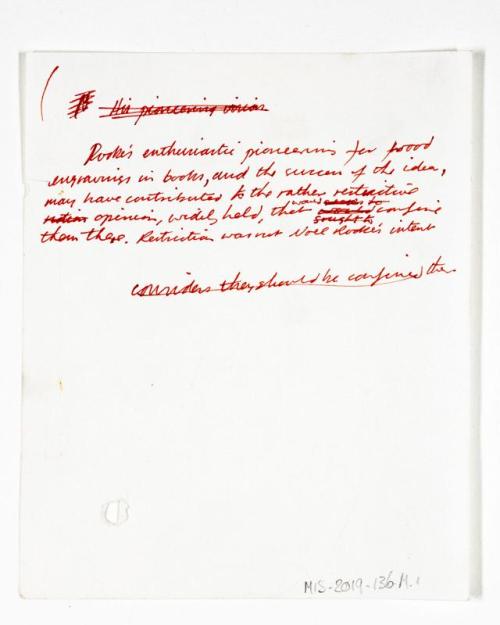 His pioneering
Rooke's enthusiastic pioneering for wood
engravings in books, and the success of the idea,
may have contributed to the rather restrictive
opinion, widely held, that confine
sought to
them there. Restriction was not Noel Rooke's intent
considers they should be confined the
MIS-2019-136-M.1